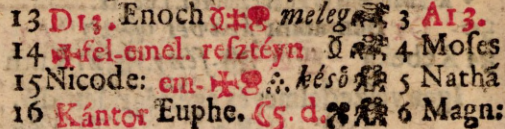 13 D13. Enoch meleg 3 A13.
14 fel-emel. reſztéyn 4 Moſes
15 Nicode: em. késö 5 Nathã
16 Kántor Euphe. ☾5. d. 6 Magn: